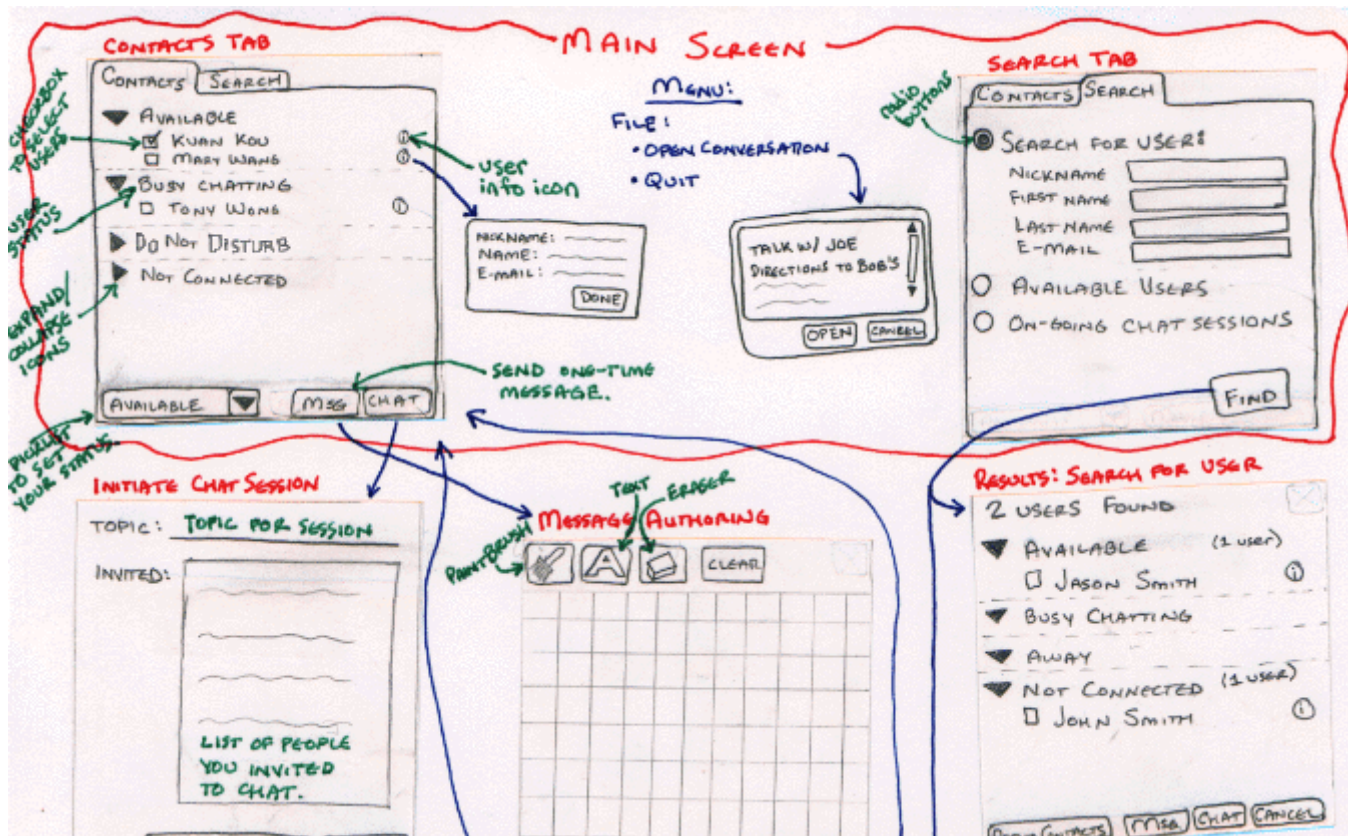 MAIN SCREEN
CONTACTS TAB
CONTACTS SEARCH
AVAILABLE
KUAN KOU
MARY WANG
BUSY CHATTING
TONY WONG
DO NOT DISTURB
NOT CONNECTED
AVAILABLE MSG CHAT
CHECKBOX
TO SELECT
USERS
USER
STATUS
EXPAND/
COLLAPSE
ICONS
PICKLIST
TO SET
YOUR STATUS.
USER
INFO ICON
NICKNAME:
NAME:
E-MAIL:
DONE
SEND ONE-TIME
MESSAGE.
MENU:
FILE:
• OPEN CONVERSATION
• QUIT
TALK W/ JOE
DIRECTIONS TO BOB'S
OPEN CANCEL
SEARCH TAB
RADIO
BUTTONS
CONTACTS SEARCH
SEARCH FOR USER:
NICKNAME
FIRST NAME
LAST NAME
E-MAIL
AVAILABLE USERS
ON-GOING CHAT SESSIONS
FIND
INITIATE CHAT SESSION
TOPIC: TOPIC FOR SESSION
INVITED:
LIST OF PEOPLE
YOU INVITED
TO CHAT.
MESSAGE AUTHORING
PAINTBRUSH
TEXT
ERASER
A CLEAR
RESULTS: SEARCH FOR USER
2 USERS FOUND
AVAILABLE (1 USER)
JASON SMITH
BUSY CHATTING
AWAY
NOT CONNECTED (1 USER)
JOHN SMITH
CONTACTS MSG CHAT CANCEL